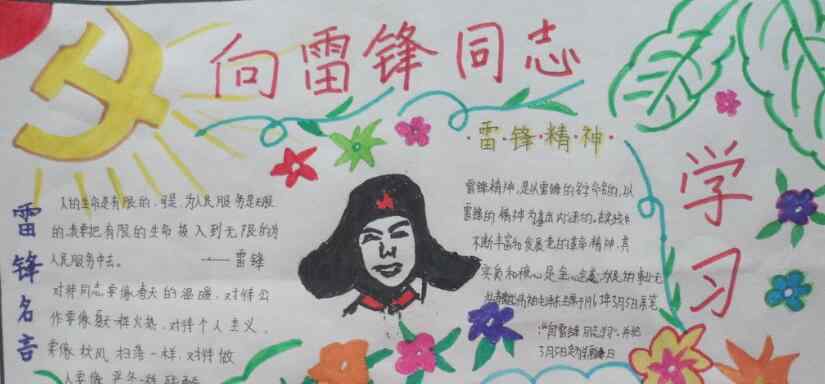 向雷锋同志
学习
雷锋名言
人的生命是有限的,可是,为人民服务是无限
的,我要把有限的生命投入到无限的为
人民服务中去。
——雷锋
对待同志要像春天的温暖,对待公
作要像夏天一样火热,对待个人主义,
要像秋风扫落一样,对待做
人要像严冬一样
·雷·锋·精·神·
雷锋精神,是以雷锋的名字命名的,以
雷锋的精神为基本内涵的、
不断丰富和发展着的革命精神,其
实质和核心是全心全意为人民的事业无
3月5日
"向雷锋同志学习"
3月5日